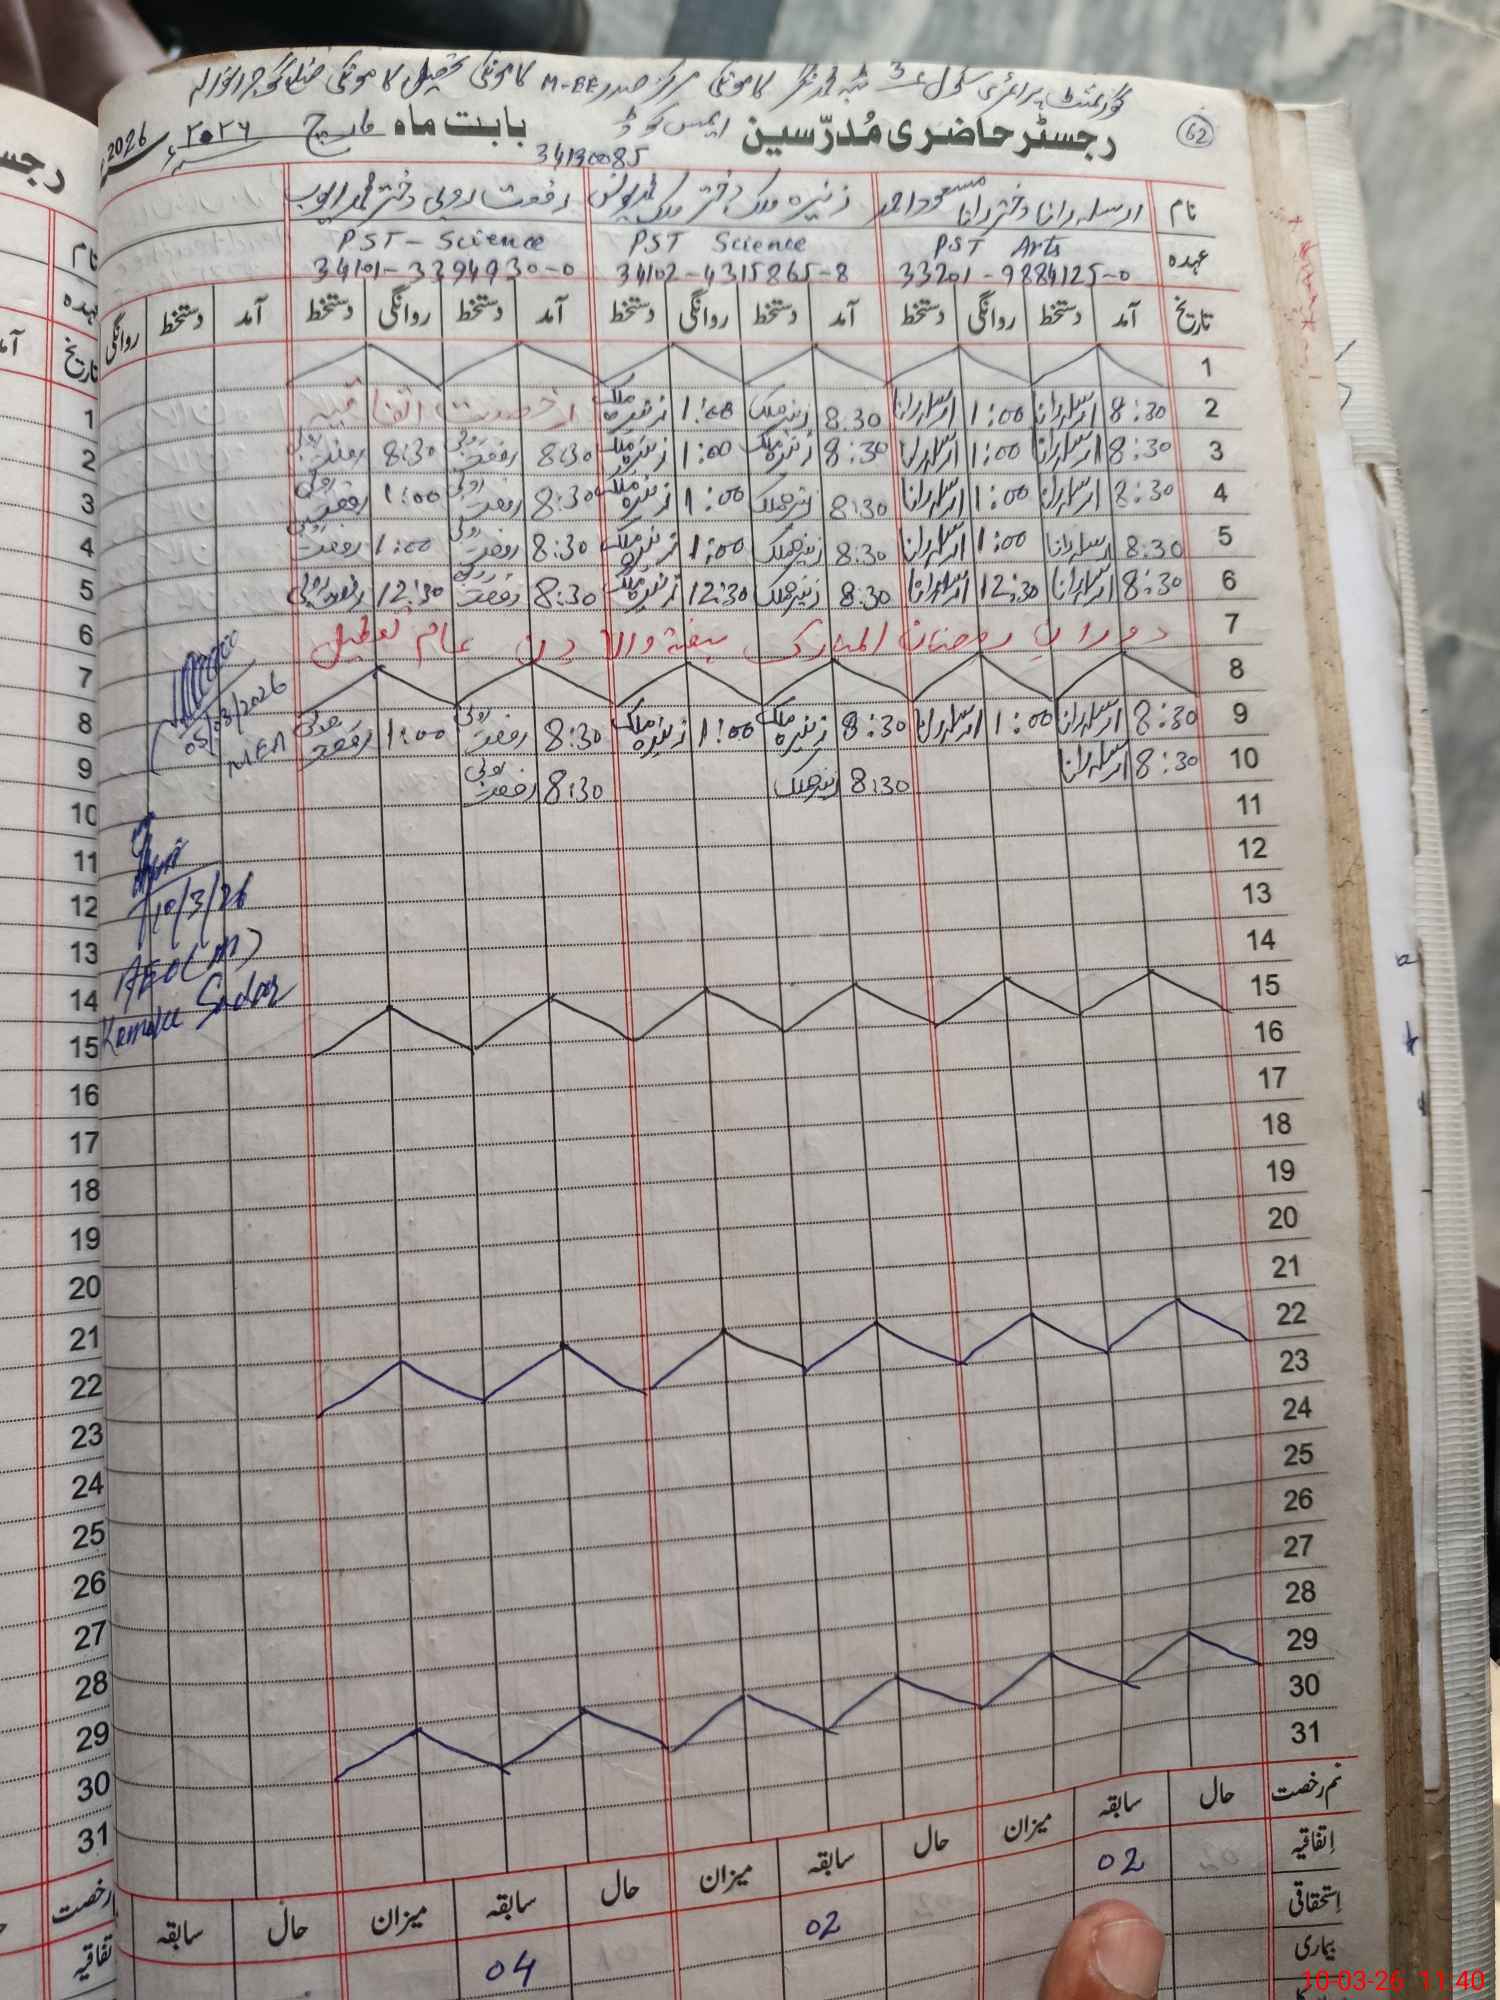 گورنمنٹ پرائمری سکول نمبر 3 ٹبہ محمد نگر کامونکی مرکز صدر M-EE کامونکی تحصیل کامونکی ضلع گوجرانوالہ
62 رجسٹر حاضری مُدرّسین ایمس کوڈ بابت ماہ مارچ ۲۰۲۶ء 2026
34130085
نام ارسلہ رانا دختر رانا مسعود احمد زنیرہ ملک دختر ملک محمد یونس رفعت روبی دختر محمد ایوب
عہدہ PST Arts PST Science PST - Science
33201-9884125-0 34102-4315865-8 34101-3394930-0
تاریخ آمد دستخط روانگی دستخط آمد دستخط روانگی دستخط آمد دستخط روانگی دستخط آمد دستخط روانگی
1
2 8:30 ارسلہ رانا 1:00 ارسلہ رانا 8:30 زنیرہ ملک 1:00 زنیرہ ملک رخصت اتفاقیہ
3 8:30 ارسلہ رانا 1:00 ارسلہ رانا 8:30 زنیرہ ملک 1:00 زنیرہ ملک 8:30 رفعت روبی 8:30 رفعت روبی
4 8:30 ارسلہ رانا 1:00 ارسلہ رانا 8:30 زنیرہ ملک 1:00 زنیرہ ملک 8:30 رفعت روبی 1:00 رفعت روبی
5 8:30 ارسلہ رانا 1:00 ارسلہ رانا 8:30 زنیرہ ملک 1:00 زنیرہ ملک 8:30 رفعت روبی 1:00 رفعت روبی
6 8:30 ارسلہ رانا 12:30 ارسلہ رانا 8:30 زنیرہ ملک 12:30 زنیرہ ملک 8:30 رفعت روبی 12:30 رفعت روبی
7 دوران رمضان المبارک ہفتہ والا دن عام تعطیل
8
9 8:30 ارسلہ رانا 1:00 ارسلہ رانا 8:30 زنیرہ ملک 1:00 زنیرہ ملک 8:30 رفعت روبی 1:00 رفعت روبی
10 8:30 ارسلہ رانا 8:30 زنیرہ ملک 8:30 رفعت روبی
05/03/2026
MEA
10/3/26
AEO(M)
Kamoke Sadar
11
12
13
14
15
16
17
18
19
20
21
22
23
24
25
26
27
28
29
30
31
نم رخصت حال سابقہ میزان حال سابقہ میزان حال سابقہ میزان حال سابقہ
اتفاقیہ 02 02 04
استحقاقی
بیماری
رجس
نام
عہدہ
تاریخ
آمد
1
2
3
4
5
6
7
8
9
10
11
12
13
14
15
16
17
18
19
20
21
22
23
24
25
26
27
28
29
30
31
رخصت
اتفاقیہ
10-03-26 11:40